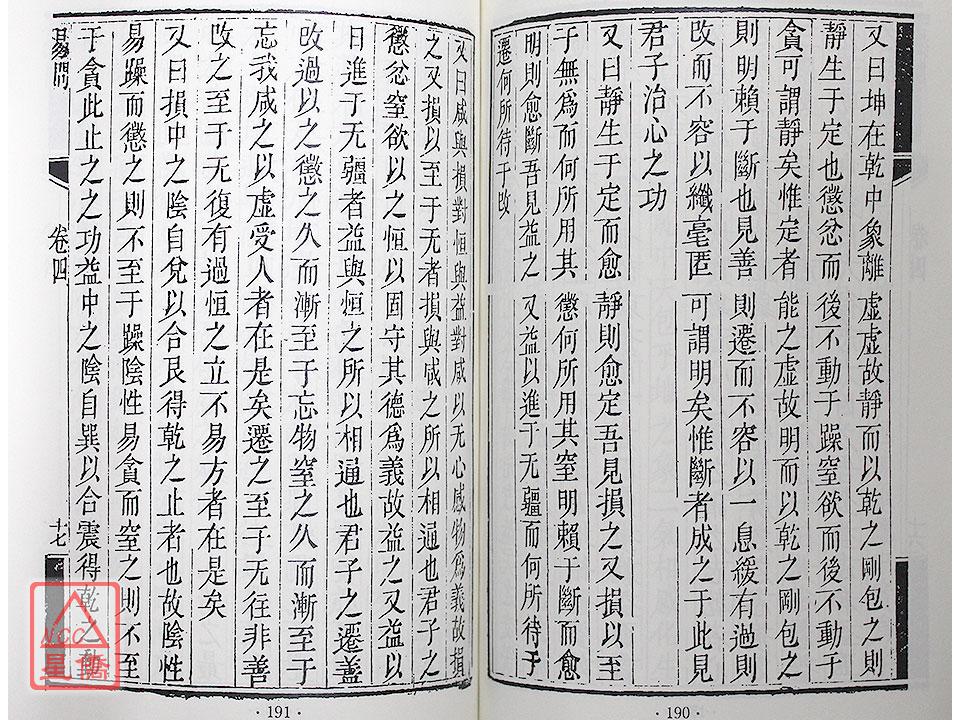 又曰坤在乾中象離虛虛故靜而以乾之剛包之則
靜生于定也懲忿而後不動于躁窒欲而後不動于
貪可謂靜矣惟定者能之虛故明而以乾之剛包之
則明賴于斷也見善則遷而不容以一息緩有過則
改而不容以纖毫匿可謂明矣惟斷者成之于此見
君子治心之功
又曰靜生于定而愈靜則愈定吾見損之又損以至
于無爲而何所用其懲何所用其窒明賴于斷而愈
明則愈斷吾見益之又益以進于无疆而何所待于
遷何所待于改
· 190 ·
又曰咸與損對恒與益對咸以无心感物爲義故損
之又損以至于无者損與咸之所以相通也君子之
懲忿窒欲以之恒以固守其德爲義故益之又益以
日進于无疆者益與恒之所以相通也君子之遷善
改過以之懲之久而漸至于忘物窒之久而漸至于
忘我咸之以虛受人者在是矣遷之至于无往非善
改之至于无復有過恒之立不易方者在是矣
又曰損中之陰自兌以合艮得乾之止者也故陰性
易躁而懲之則不至于躁陰性易貪而窒之則不至
于貪此止之之功益中之陰自巽以合震得乾之動
易問
卷四
十七
· 191 ·
NCC
星僑